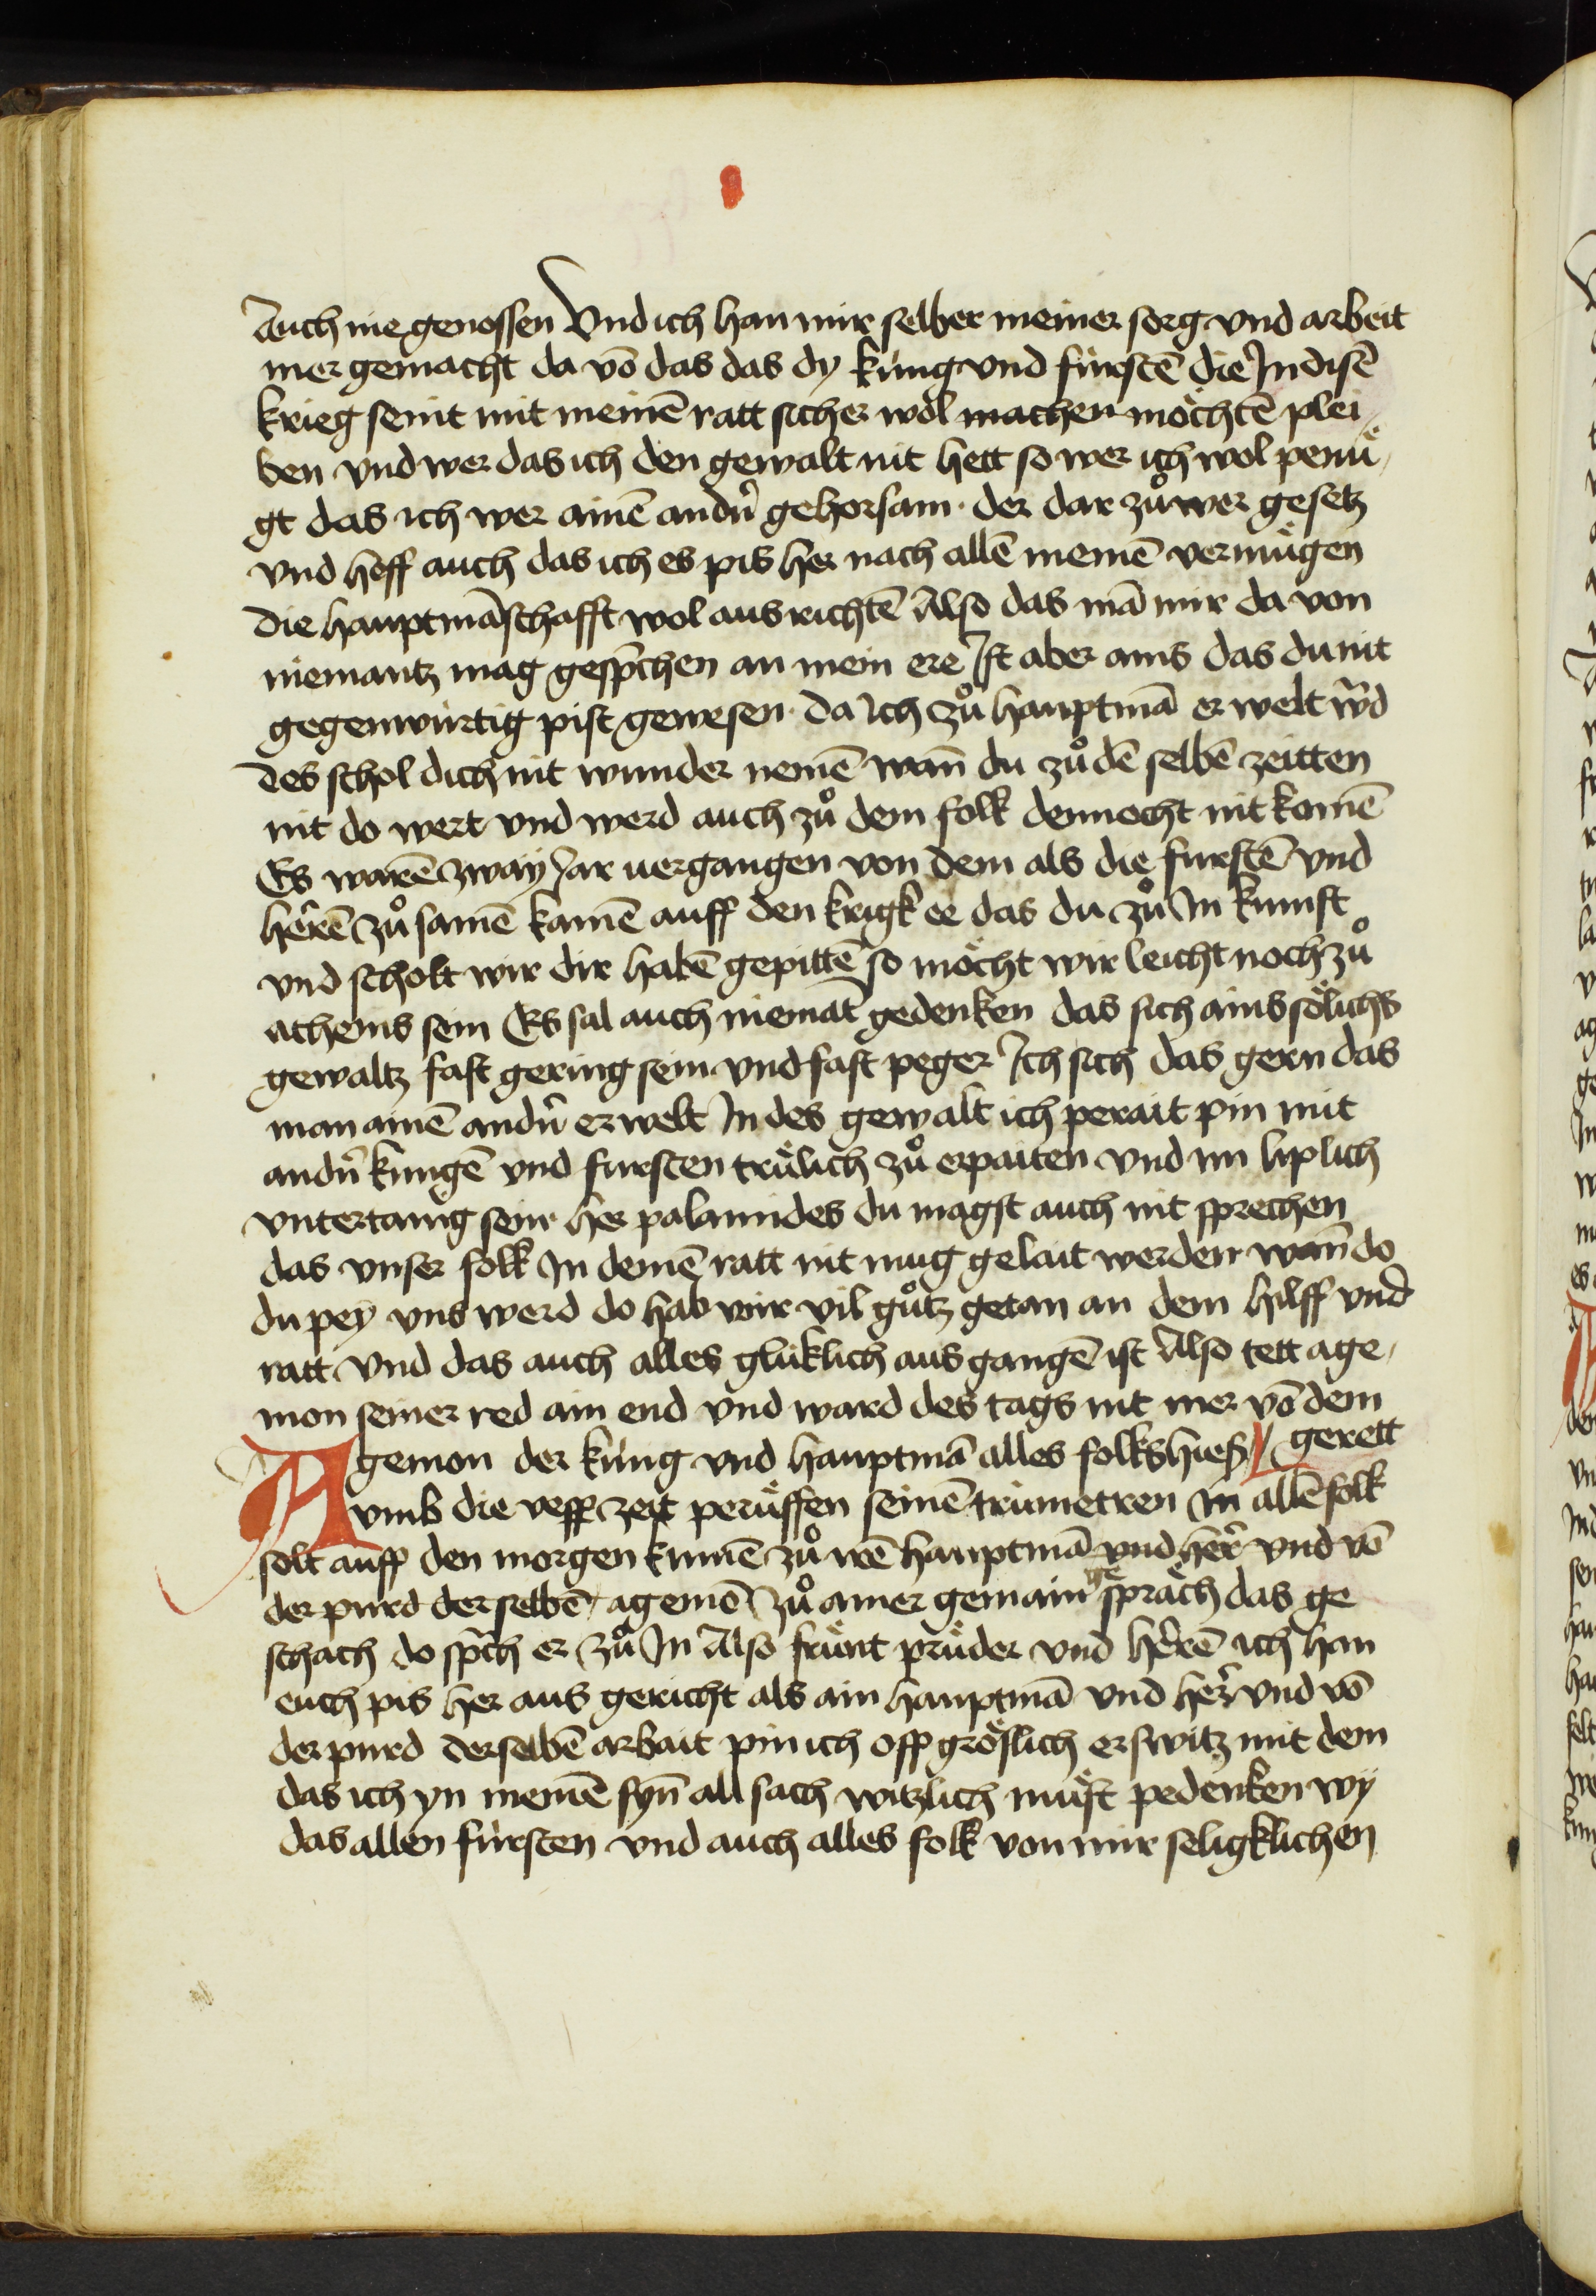 Auch nie genossen Vnd ich han mir selber meiner sorg vnd arbeit
mer gemacht da vō das das dy küng vnd fürstē die In disē
krieg seint mit meinē ratt sicher wol machen möchtē plei
ben vnd wer das ich den gewalt nit hett so wer ich wol penü
gt das ich wer ainē andn̄ gehorsam · der dar zů wer gesetz
vnd hoff auch das ich es pis her nach allē meinē vermügen
die hauptmāschafft wol aus richtē Also das mā mir da von
niemantz mag gesp̄chen an mein ere Ist aber ains das du nit
gegenwürtig pist gewesen · da ich zů hauptmā er welt w̄d
des schol dich nit wunder nemē wan̄ du zů dē selbē zeitten
nit do wert vnd werd auch zů dem folk dennocht nit komē
Es warē zway Jar uergangen von dem als die furstē vnd
herrē zů samē kamē auff den krigk ee das du zů In kumst
vnd scholt wir dir habē gepittē so möcht wir leicht noch zů
athenis sein Es sal auch niemāt gedenken das sich ains sölichs
gewaltz fast gering sein vnd fast peger Ich sich das gern das
man ainē andn̄ er welt In des gewalt ich perait pin mit
andn̄ küngē vnd fursten trülich zů erpaiten vnd im liplich
vntertanig sein her palamides du magst auch nit sprechen
das vnser folk In deinē ratt nit mug gelait werden wan̄ do
du pey vns werd do hab wir vil gůtz getan an dem hilff vnd
ratt vnd das auch alles glüklich aus gangē ist Also tett age
mon seiner red ain end vnd ward des tags nit mer vō dem
Agemon der küng vnd hauptmā alles folks hies gerett
vmb die vesp zeit perüffen seinē trumetren In allē folk
solt auff den morgen kumē zů irē hauptmā vnd her̄ vnd vō
der purd der selbē agemō zů ainer gemain ge spräch das ge
schach do sp̄ch er zů In Also frünt prüder vnd herrē ich han
euch pis her aus gericht als ain hauptmā vnd her̄ vnd vō
der purd derselbē arbait pin ich off gröslich erswitz mit dem
das ich yn meinē syn̄ all sach witzlich müst pedenken wy
das allen fürsten vnd auch alles folk von mir seligklichen